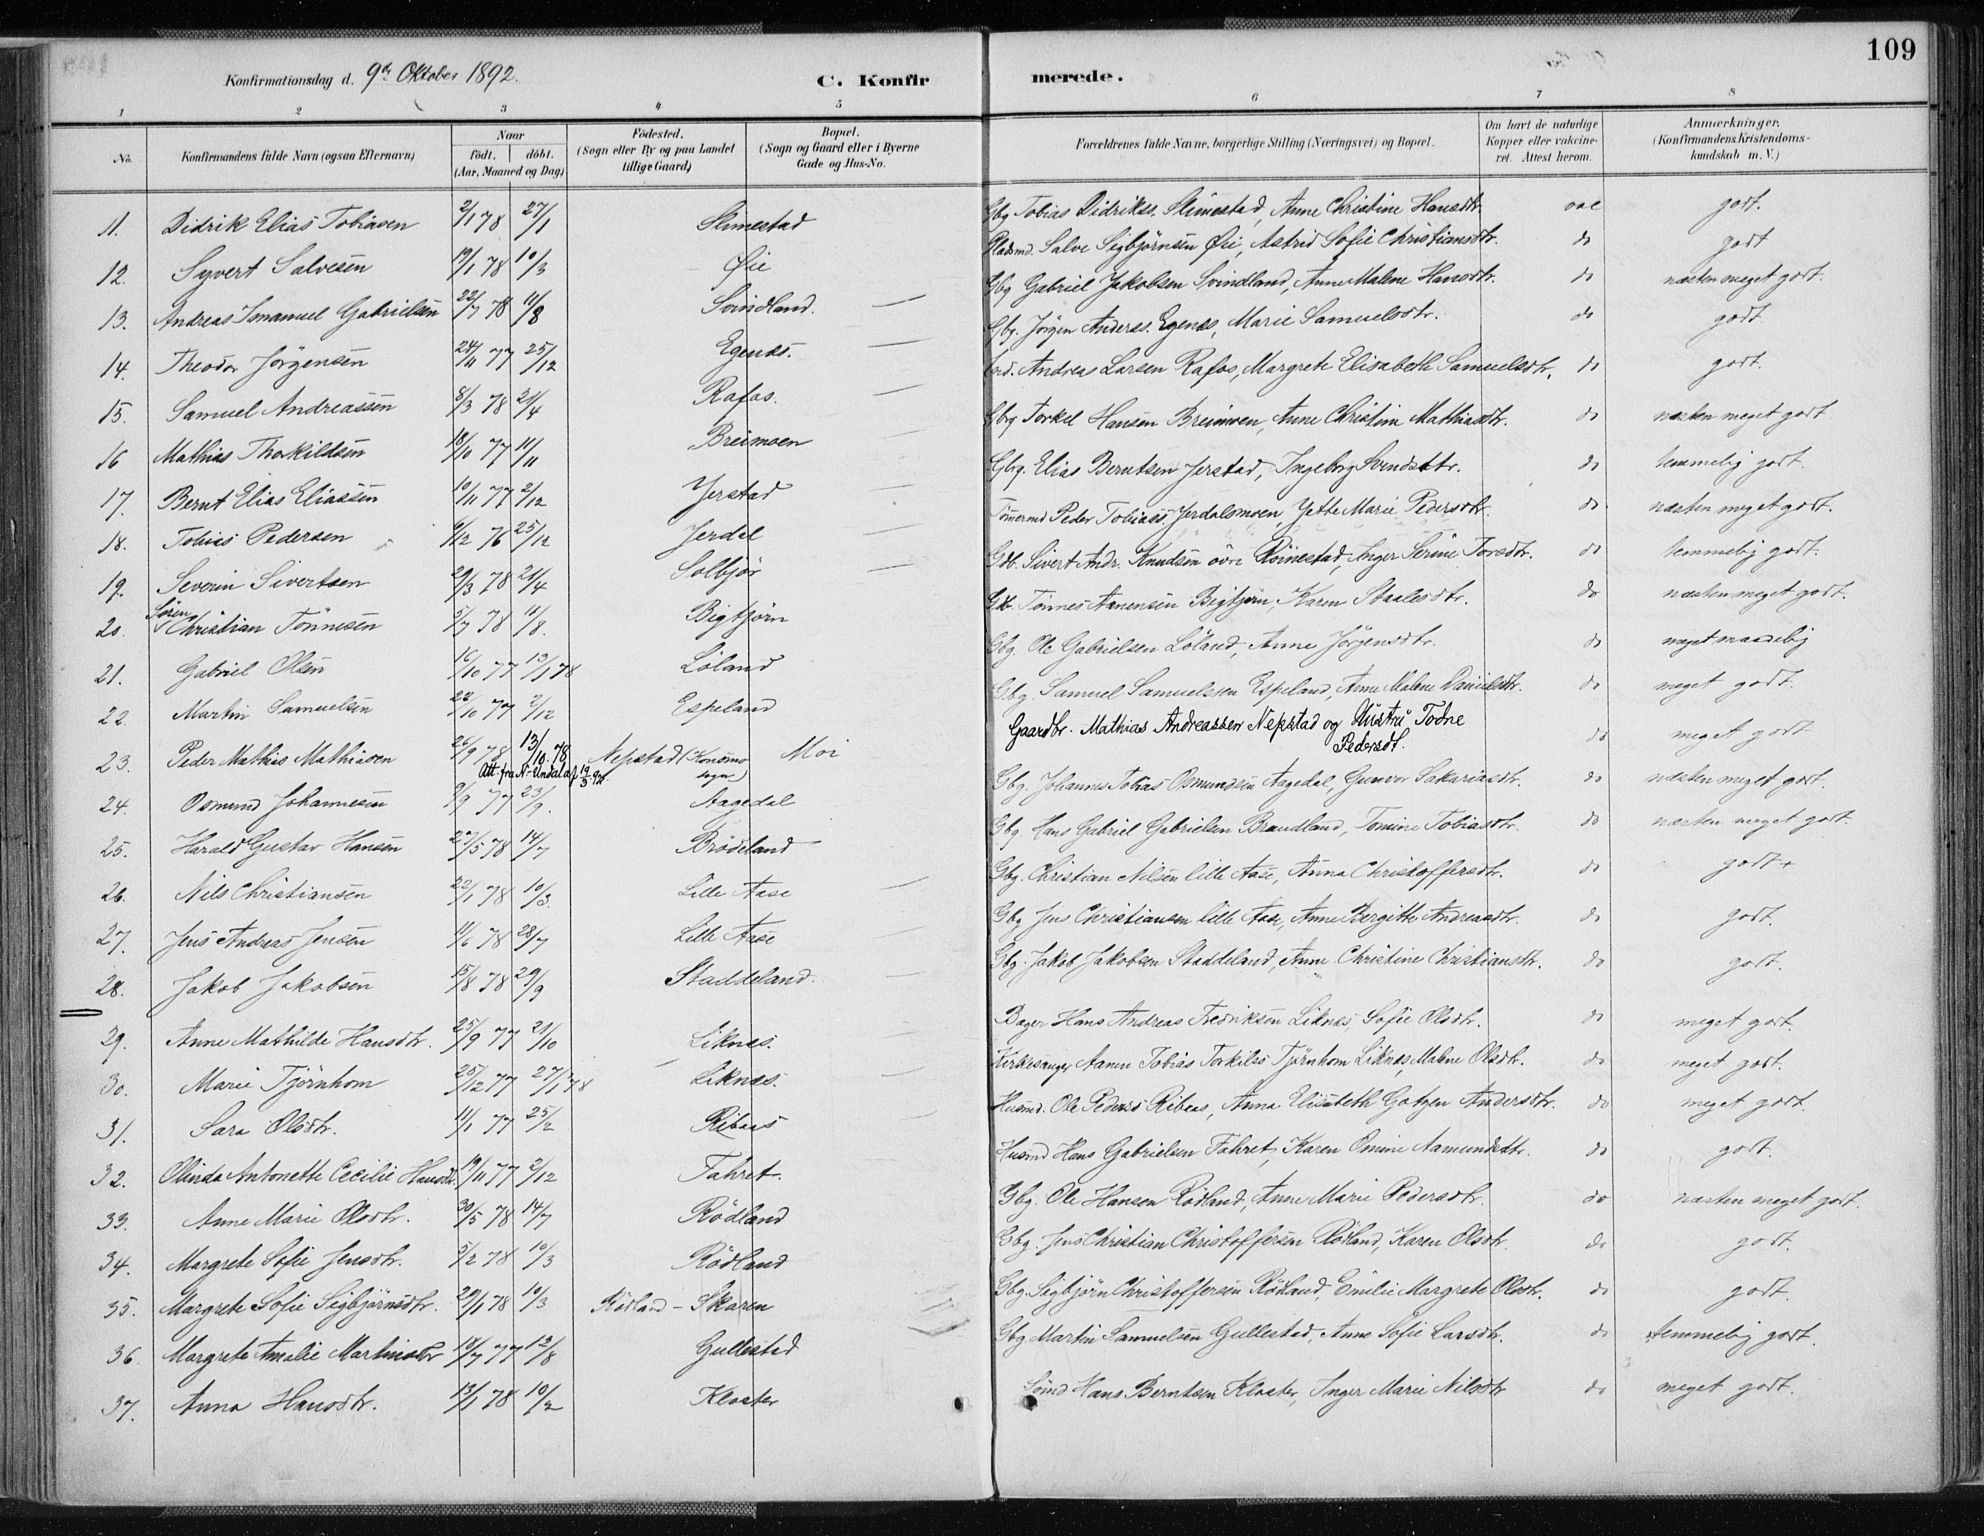 109
Konfirmationsdag d. 9de Oktober 1892.
C. Konfirmerede.
1 2 3 4 5 6 7 8
No. Konfirmandens fulde Navn (ogsaa Efternavn) Naar født. | døbt. (Aar, Maaned og Dag) Fødested. (Sogn eller By og paa Landet tillige Gaard) Bopæl. (Sogn og Gaard eller i Byerne Gade og Hus-No. Forældrenes fulde Navne, borgerlige Stilling (Næringsvei) og Bopæl. Om havt de naturlige Kopper eller vakcineret. Attest herom. Anmærkninger. (Konfirmandens Kristendomskundskab m. V.)
11. Didrik Elias Tobiasen 2/1 78 27/1 Slimestad Gbg Tobias Didrikss. Slimestad, Anne Christine Hansdtr. vac godt.
12. Syvert Salvesen 19/1 78 10/3 Øie Pladsmd. Salve Sigbjørnsen Øie, Astrid Sofie Christiansdtr. do godt
13. Andreas Imanuel Gabrielsen 22/7 78 11/8 Svindland. Gbg Gabriel Jakobsen Svindland, Anne Malene Hansdtr. do næsten meget godt.
14. Theodor Jørgensen 24/11 77 25/12 Egenæs. Gbg. Jørgen Anderss. Egenæs, Marie Samuelsdtr. do godt
15. Samuel Andreassen 8/3 78 21/4 Rafos. Andreas Larsen Rafos, Margrete Elisabeth Samuelsdtr. do godt.
16 Mathias Thorkildsen 18/10 77 11/11 Breimoen Gbg Torkel Hansen Breimoen, Anne Christine Mathiasdtr. do næsten meget godt
17. Bernt Elias Eliassen 10/11 77 2/12 Jerstad Gbg. Elias Berntsen Jerstad, Ingeborg Svendsdtr. do temmelig godt.
18. Tobias Pedersen 9/12 76 25/12 Jerdal Tømermd Peder Tobiass. Jerdalsmoen, Jette Marie Pedersdtr. do næsten meget godt.
19. Severin Sivertsen 29/3 78 21/4 Solbjør Gbr. Sivert Andr. Knudsen øvre Røinestad, Inger Serine Torsdtr. do temmelig godt.
20. Søren Christian Tønnesen 5/7 78 11/8. Bigtjørn Gbr. Tønnes Aanensen Bigtjørn, Karen Staalesdtr. do næsten meget godt.
21. Gabriel Olsen 16/10 77 13/1 78 Løland Gbg. Ole Gabrielsen Løland, Anne Jørgensdtr. do meget maadelig
22. Martin Samuelsen 22/10 77 2/12 Espeland Gbg. Samuel Samuelssen Espeland, Anne Malene Danielsdtr. do meget godt.
23. Peder Mathias Mathiasen 24/9 78 13/10. 78 Nepstad (Konsmo sogn) Moi Gaardbr. Mathias Andreassen Nepstad og Hustru Todne Pedersdt. do meget godt
Att. fra N.-Undal af 19/3 92
24. Osmund Johannesen 2/9 77 23/9. Aagedal Gbg. Johannes Tobias Osmundsen Aagedal, Gunvor Sakariasdtr. do næsten meget godt.
25. Harald Gustav Hansen 27/5 78 14/7 Brødeland Gbg. Hans Gabriel Gabrielsen Braudland, Tomine Tobiasdtr. do næsten meget godt.
26. Nils Christiansen 22/1 78 10/3. Lille Aase Gbg. Christian Nilsen lille Aase, Anna Christoffersdtr. do godt +
27. Jens Andreas Jensen 11/6 78 28/7 Lille Aase Gbg Jens Christiansen lille Aase, Anne Bergitte Andreasdtr. do godt.
28. Jakob Jakobsen 15/8 78 29/9 Staddeland. Gbg. Jakob Jakobsen Staddeland, Anne Christine Christiansdtr. do godt.
29. Anne Mathilde Hansdtr. 25/9 77 21/10 Liknes. Bager Hans Andreas Fredriksen Liknes, Sofie Olsdtr. do meget godt.
30. Marie Tjørnhom 25/12 77 27/1 78 Liknes. Kirkesanger Aanen Tobias Torkilss Tjørnhom Liknes, Malene Olsdtr. do meget godt.
31. Sara Olsdtr. 11/1 77 25/2 Ribaas Husmd. Ole Pederss Ribaas, Anna Elisabeth Gotzen Andersdtr. do meget godt.
32. Olinda Antonette Cecilie Hansdtr. 19/11 77 2/12 Fahret. Husmd Hans Gabrielsen Fahret, Karen Omine Aamundsdtr. do godt.
33. Anne Marie Olsdtr. 30/5 78 14/7 Rødland Gbg. Ole Hansen Rødland, Anne Marie Pedersdtr. do næsten meget godt.
34. Margrete Sofie Jensdtr. 5/2 78 10/3 Rødland Gbg. Jens Christian Christoffersen Rødland, Karen Olsdtr. do godt.
35. Margrete Sofie Sigbjørnsdtr. 20/1 78 10/3 Rødland - Skaren Gbg. Sigbjørn Christoffersen Rødland Emilie Margrete Olsdtr. do godt.
36. Margrete Amalie Martinsdtr 18/7 77 12/8 Gullestad Gbg Martin Samuelsen Gullestad, Anne Sofie Larsdtr. do temmelig godt.
37. Anna Hansdtr. 13/1 78 10/2 Kloster Hans Berntsen Kloster, Inger Marie Nilsdtr do meget godt.